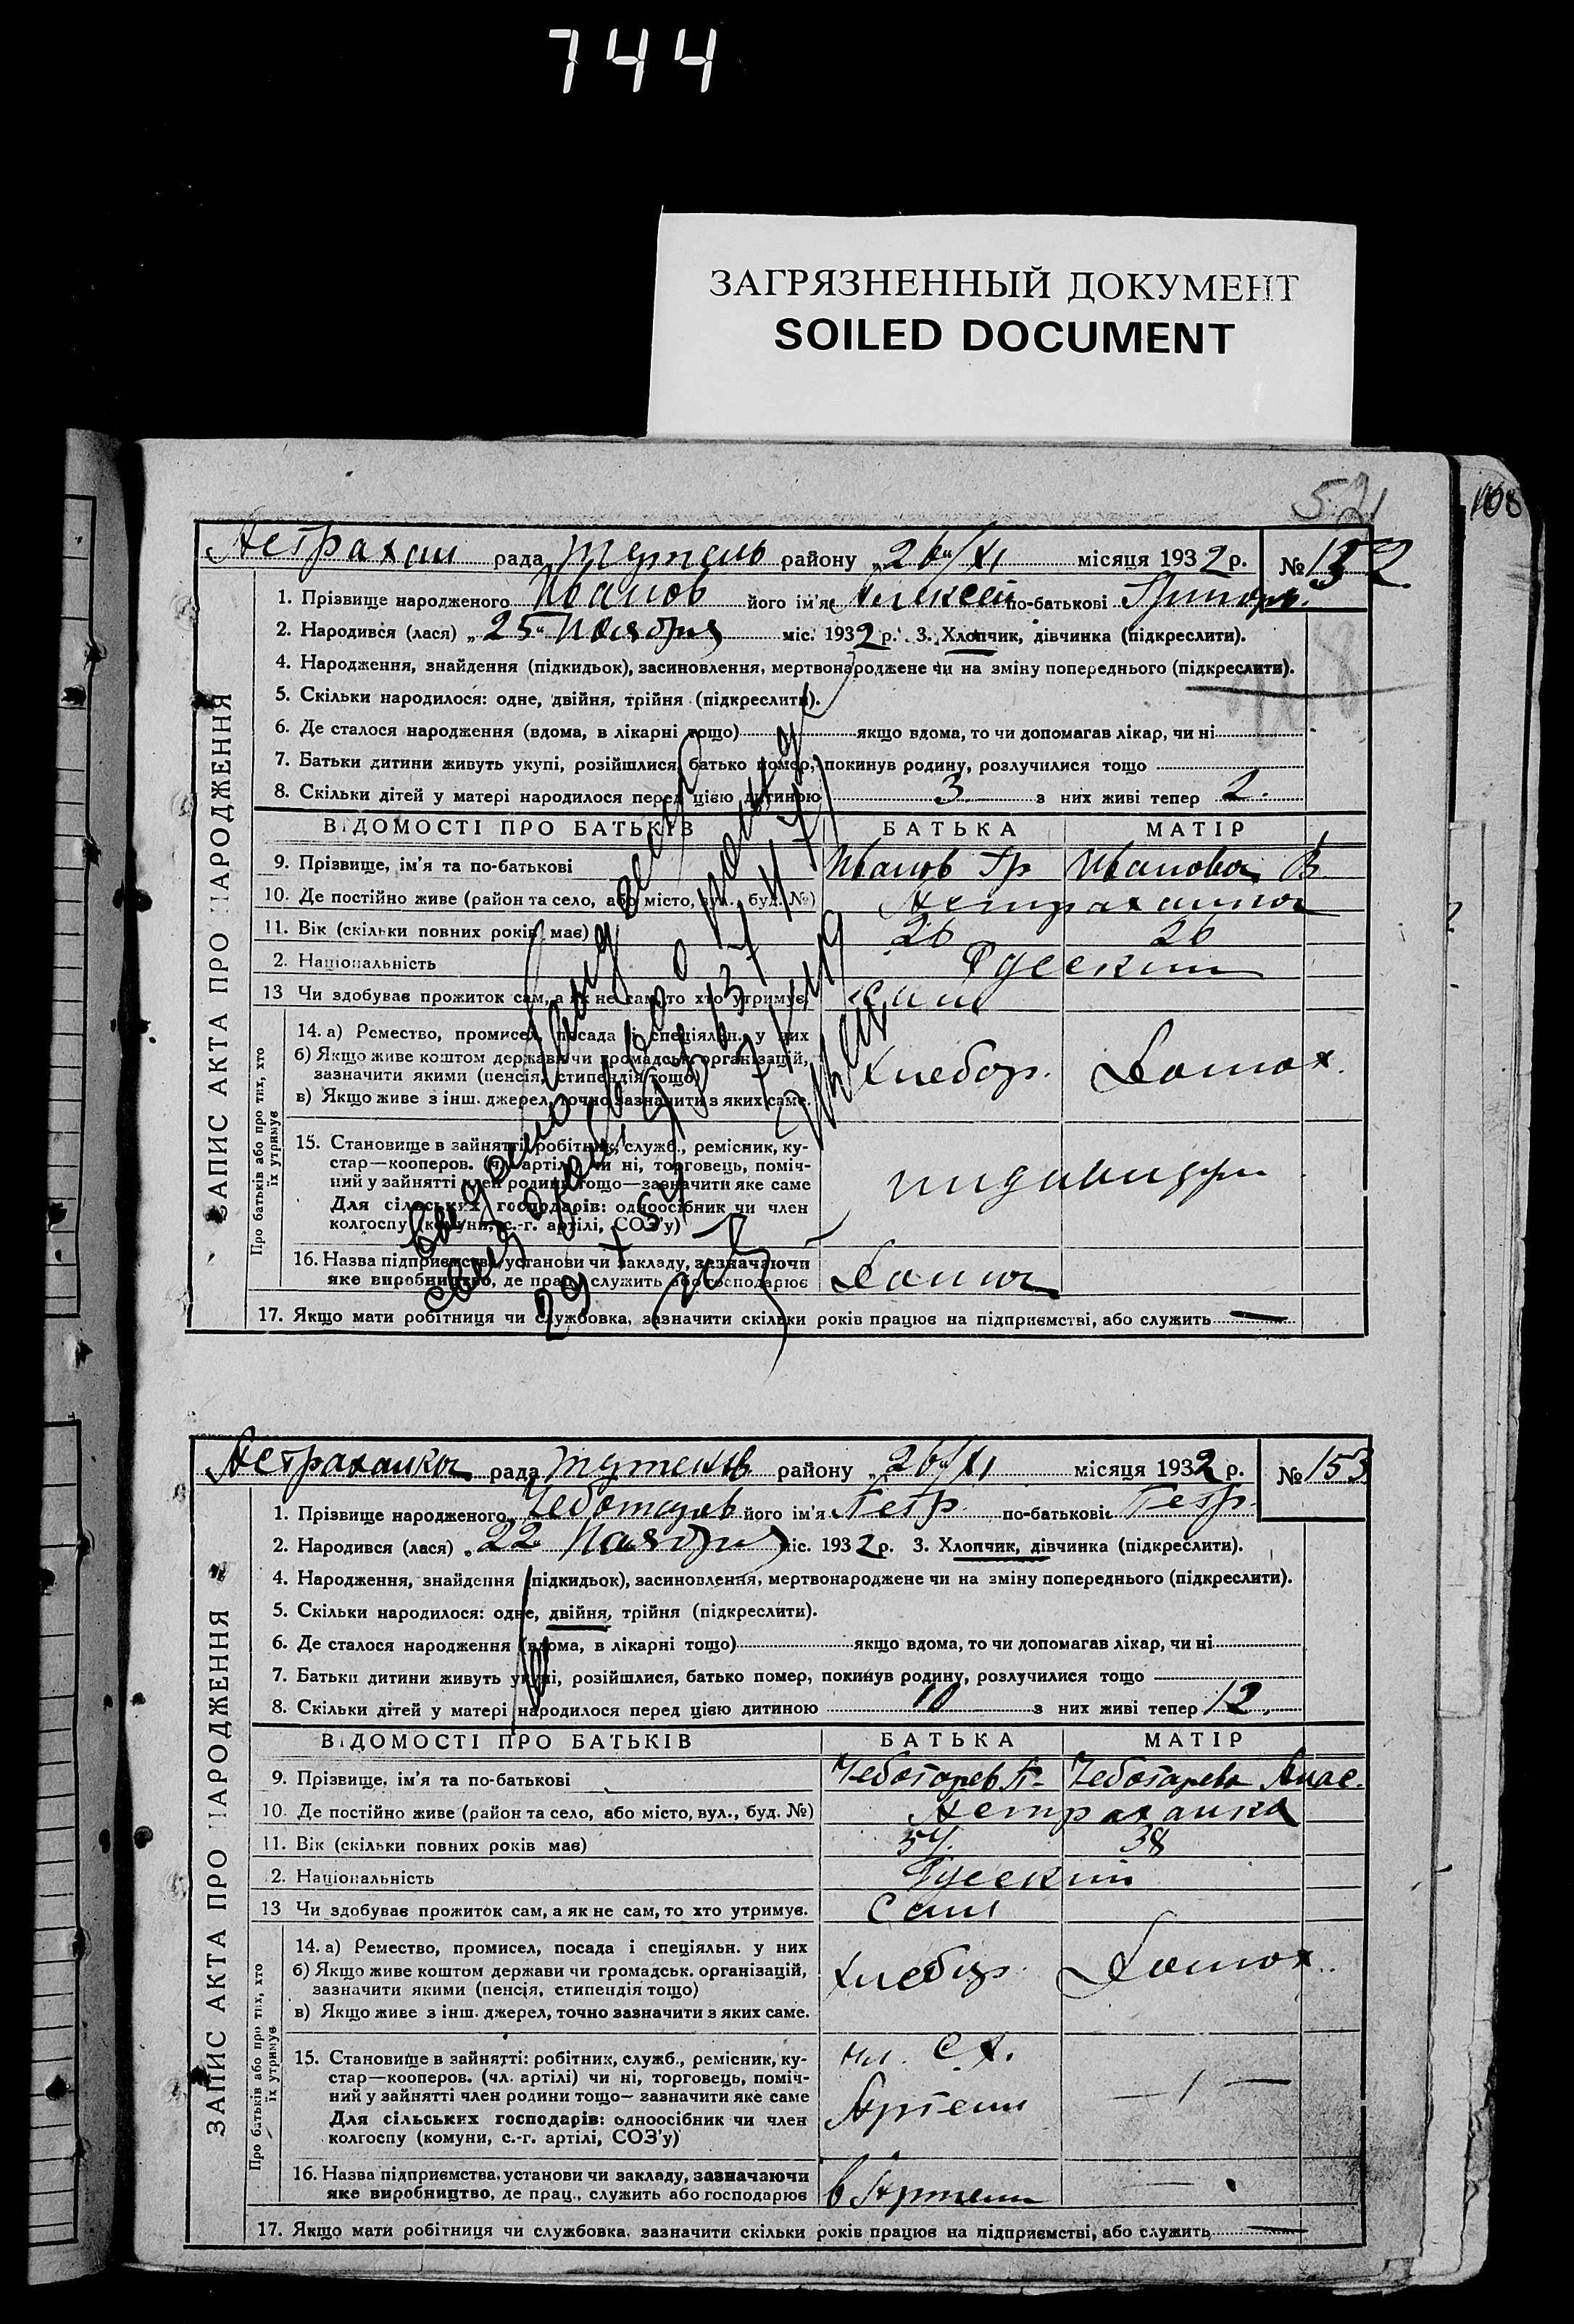 744
ЗАГРЯЗНЕННЫЙ ДОКУМЕНТ
SOILED DOCUMENT
108
52
Астрахан рада району „26“/XI місяця 1932 р. № 152
1. Прізвище народженого Иванов його ім'я Алексей по-батькові Григорь.
2. Народився (лася) „25“ Ноября міс. 1932 р. 3. Хлопчик, дівчинка (підкреслити).
4. Народження, знайдення (підкидьок), засиновлення, мертвонароджене чи на зміну попереднього (підкреслити).
5. Скільки народилося: одне, двійня, трійня (підкреслити).
6. Де сталося народження (вдома, в лікарні тощо) якщо вдома, то чи допомагав лікар, чи ні
7. Батьки дитини живуть укупі, розійшлися, батько помер, покинув родину, розлучилися тощо
8. Скільки дітей у матері народилося перед цією дитиною 3 з них живі тепер 2.
ВІДОМОСТІ ПРО БАТЬКІВ БАТЬКА МАТІР
9. Прізвище, ім'я та по-батькові Иванов Гр Иванова В
10. Де постійно живе (район та село, або місто, вул., буд. №) Астраханка
11. Вік (скільки повних років має) 26 26
2. Національність Русский
13 Чи здобував прожиток сам, а як не сам, то хто утримує. Сам
14. а) Ремество, промисел, посада і спеціяльн. у них
б) Якщо живе коштом держави чи громадськ. організацій,
зазначити якими (пенсія, стипендія тощо)
в) Якщо живе з інш. джерел, точно зазначити з яких саме.
Хлебор. Домох.
15. Становище в зайнятті: робітник, служб., ремісник, ку-
стар—кооперов. (чл. артілі) чи ні, торговець, поміч-
ний у зайнятті член родини тощо—зазначити яке саме
Для сільських господарів: одноосібник чи член
колгоспу (комуни, с.-г. артілі, СОЗ'у)
16. Назва підприємства, установи чи закладу, зазначаючи
яке виробництво, де прац., служить або господарює
Дома
17. Якщо мати робітниця чи службовка, зазначити скільки років працює на підприємстві, або служить —
ЗАПИС АКТА ПРО НАРОДЖЕННЯ
Про батьків або про тих, хто
їх утримує
Астраханка рада району „26“/XI місяця 1932 р. № 153
1. Прізвище народженого Чеботарев його ім'я Петр. по-батькові Петр.
2. Народився (лася) „22 Ноября міс. 1932 р. 3. Хлопчик, дівчинка (підкреслити).
4. Народження, знайдення (підкидьок), засиновлення, мертвонароджене чи на зміну попереднього (підкреслити).
5. Скільки народилося: одне, двійня, трійня (підкреслити).
6. Де сталося народження (вдома, в лікарні тощо) якщо вдома, то чи допомагав лікар, чи ні
7. Батьки дитини живуть укупі, розійшлися, батько помер, покинув родину, розлучилися тощо
8. Скільки дітей у матері народилося перед цією дитиною 10 з них живі тепер 12.
ВІДОМОСТІ ПРО БАТЬКІВ БАТЬКА МАТІР
9. Прізвище, ім'я та по-батькові Чеботарев П. Чеботарева Анас.
10. Де постійно живе (район та село, або місто, вул., буд. №) Астраханка
11. Вік (скільки повних років має) 38
2. Національність Русский
13 Чи здобував прожиток сам, а як не сам, то хто утримує. Сам
14. а) Ремество, промисел, посада і спеціяльн. у них
б) Якщо живе коштом держави чи громадськ. організацій,
зазначити якими (пенсія, стипендія тощо)
в) Якщо живе з інш. джерел, точно зазначити з яких саме.
Хлебор. Домох.
15. Становище в зайнятті: робітник, служб., ремісник, ку-
стар—кооперов. (чл. артілі) чи ні, торговець, поміч-
ний у зайнятті член родини тощо— зазначити яке саме
Для сільських господарів: одноосібник чи член
колгоспу (комуни, с.-г. артілі, СОЗ'у)
чл. С.Х.
Артели
16. Назва підприємства, установи чи закладу, зазначаючи
яке виробництво, де прац., служить або господарює
в Артели
17. Якщо мати робітниця чи службовка, зазначити скільки років працює на підприємстві, або служить —
ЗАПИС АКТА ПРО НАРОДЖЕННЯ
Про батьків або про тих, хто
їх утримує